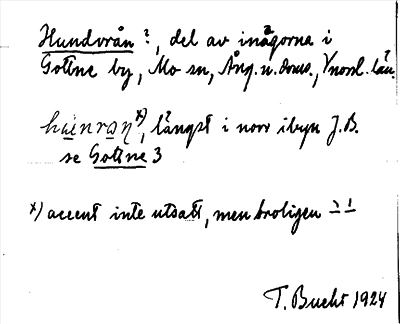 Hundvrån?, del av inägorna i
Gottne by, Mo sn, Ång. u. doms., Vnorrl. län.
längst i norr i byn J.B.
se Gottne 3
x) accent inte utsatt, men troligen
T. Bucht 1924